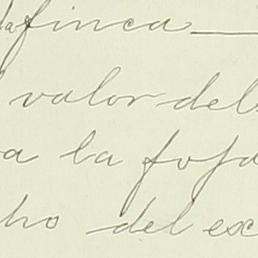 la finca
valor del
a la foja
ho del ex